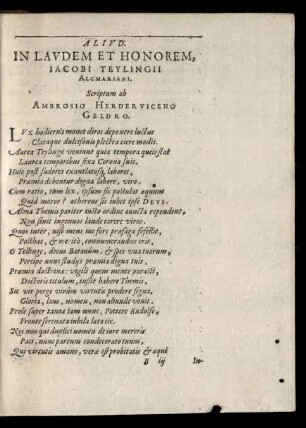 ALIVD.
IN LAVDEM ET HONOREM,
IACOBI TEYLINGII
ALCMARIANI.
Scriptum ab
AMBROSIO HERDERVICENO
GELDRO.
LVx hodierna monet diros deponere luctus
Claraque dulcisonis plectra ciere modis.
Aurea Teylingo veniunt quia tempora quîs stat
Laurea temporibus fixa Corona suis.
Huic post sudores exantlatosq́, labores,
Præmia debentur digna labore, viro.
Cum ratio, tum lex, ipsum sic postulat æquum
Quid moror? æthereus sic iubet ipse DEVS.
Alma Themis pariter iusto ordine cuncta rependens,
Non sinit ingenuos laude carere viros.
Quos inter, nisi mens me fors præsaga fefellit,
Posthac, & meritò, connumerandus eris,
O Tellinge, decus Batauûm, & spes tuorum,
Percipe nunc studijs præmia digna tuis,
Præmia doctrinæ; vigili quem mente parasti,
Doctoris titulum, iussit habere Themis,
Sic vir perge virûm virtutis prodere signa,
Gloria, laus, nomen, non aliunde venit.
Prole super tanta tum nunc, Pater Rudolfe,
Fronte serenata iubila læta cie.
Nec non qui duplici nomen de iure mereris
Paci, nunc partum condecorato tuum,
Qui virtutis amans, vera es probitatis & æqui
B iij In-